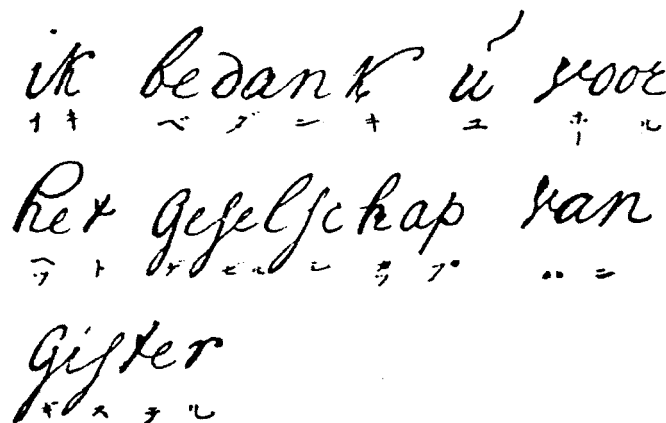 ik bedank ú voor
イキ ベダンキ ユ ホール
het geſelſchap van
ヘット ゲセルシカップ ハン
giſter
ギステル